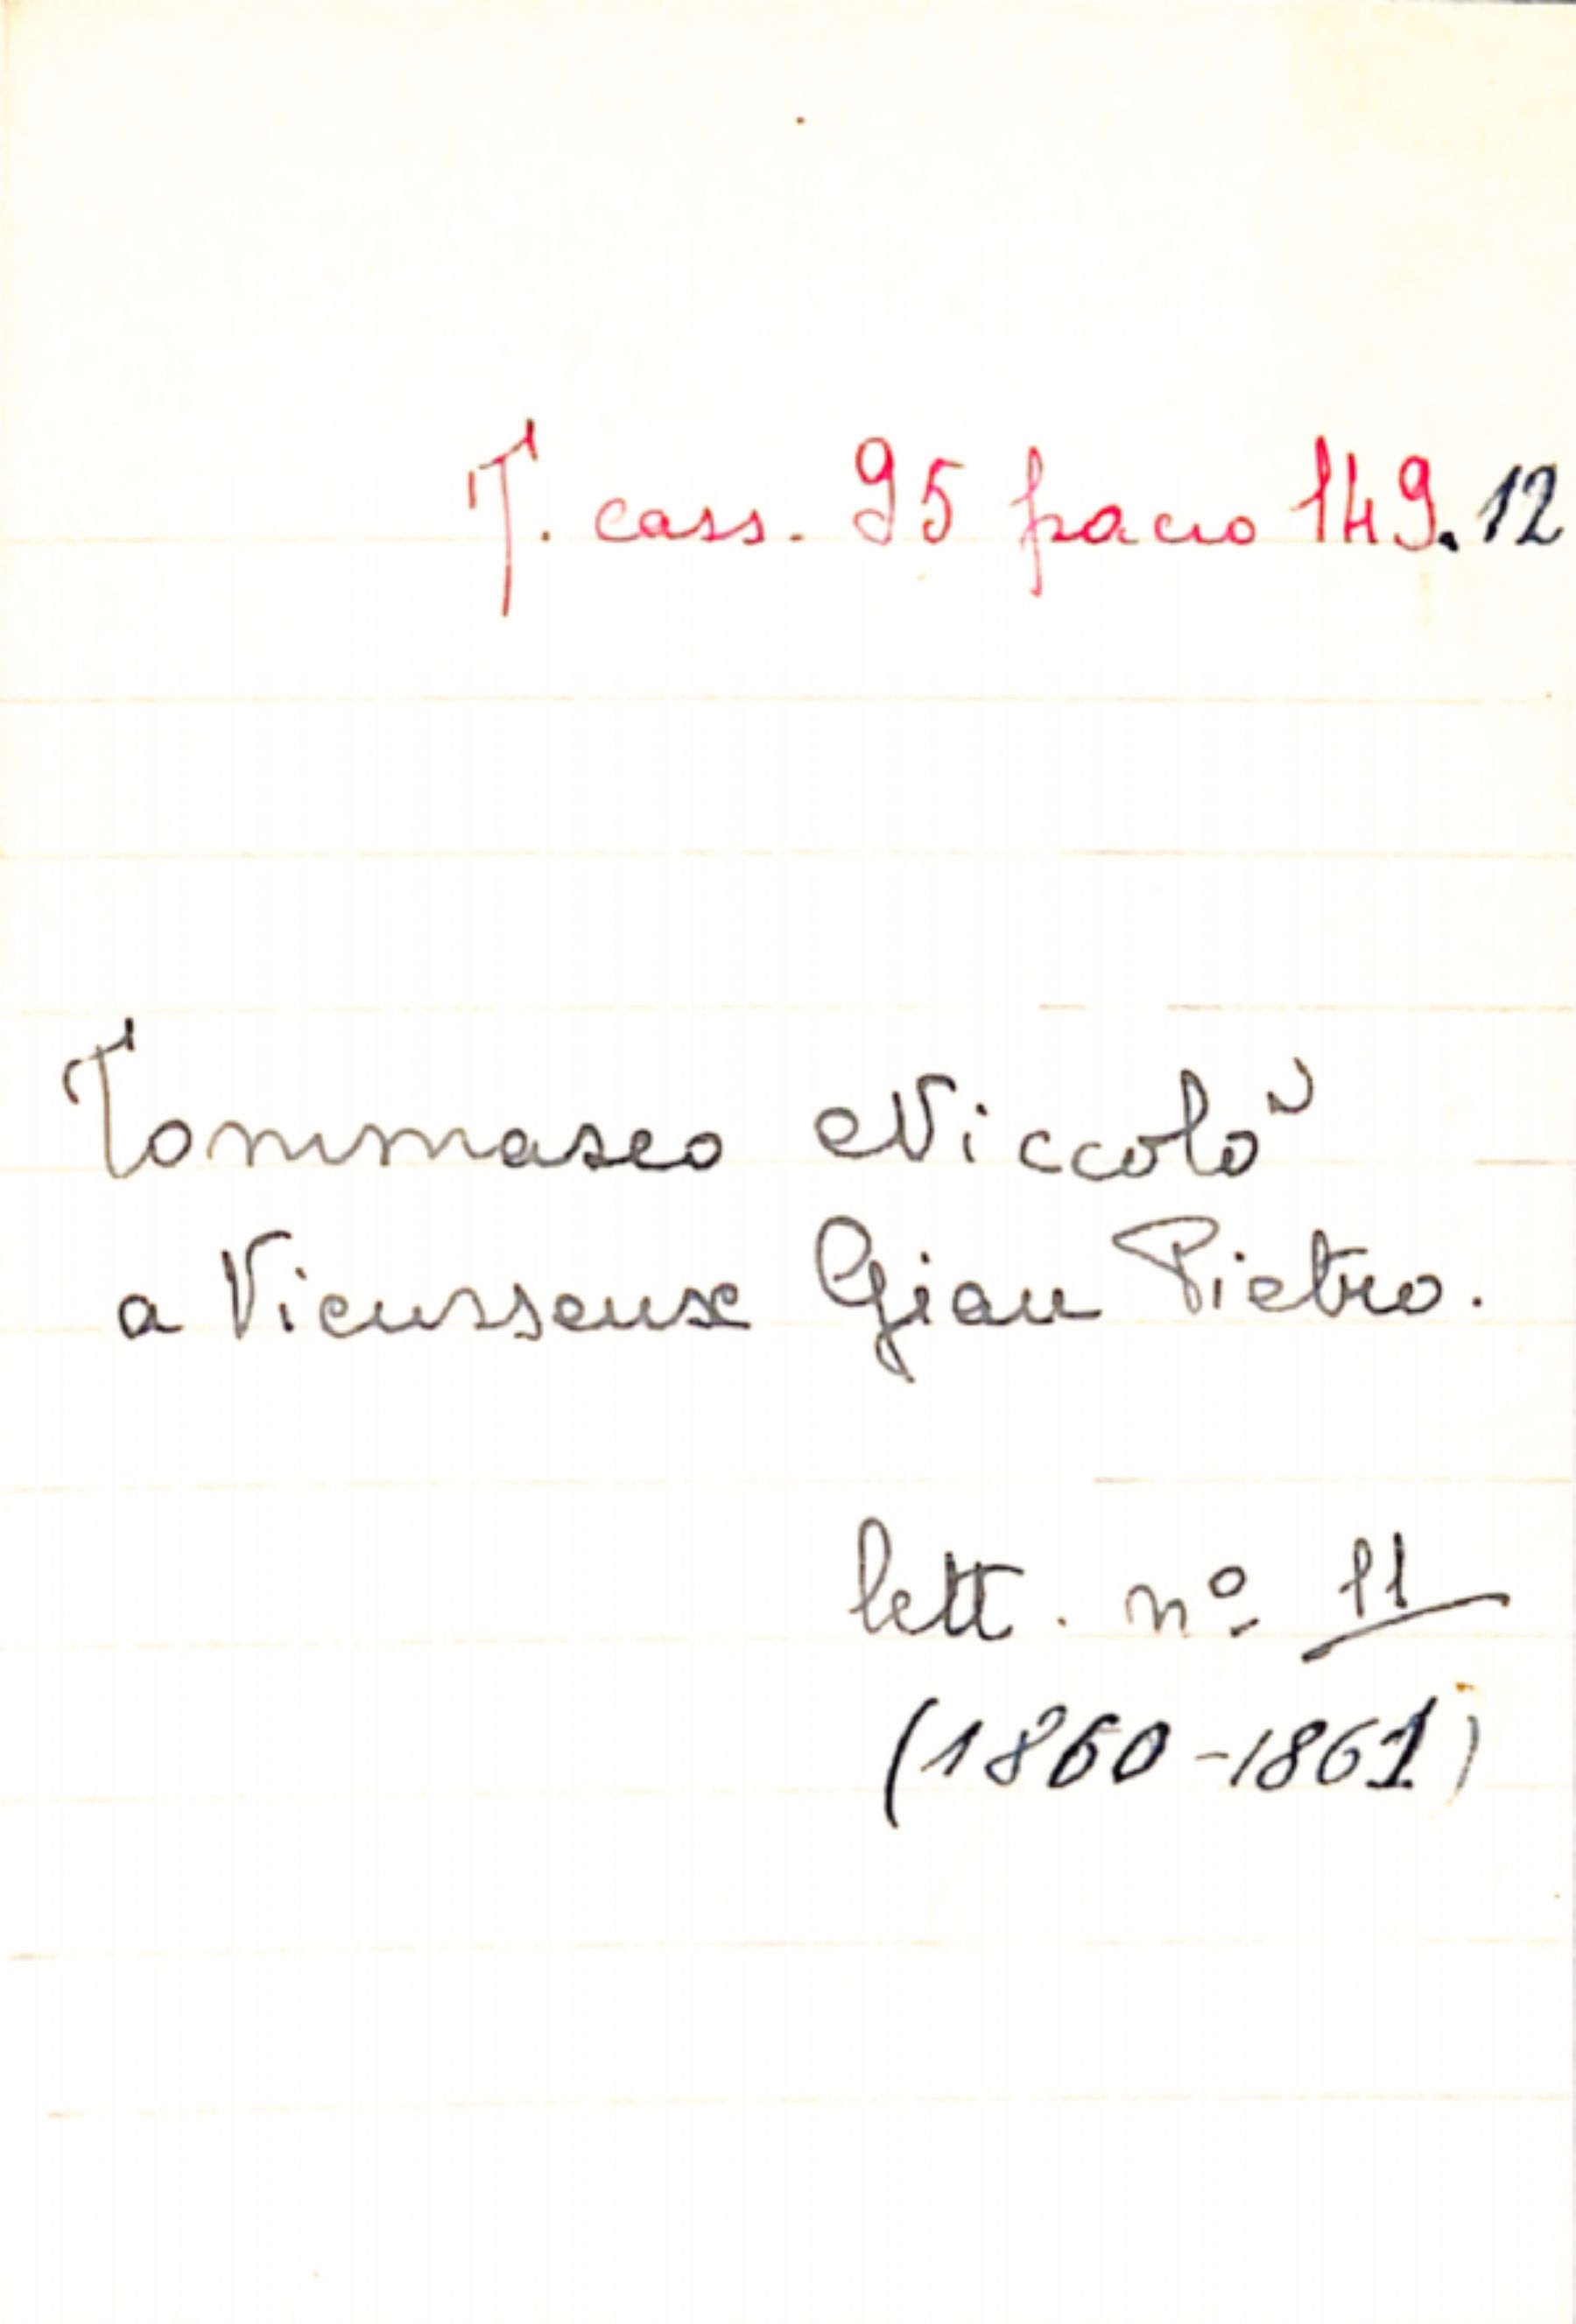 T. cass. 95 pacco 149.12
Tommaseo Niccolò
a Vieusseux Gian Pietro.
lett. nº 11
(1860-1861)